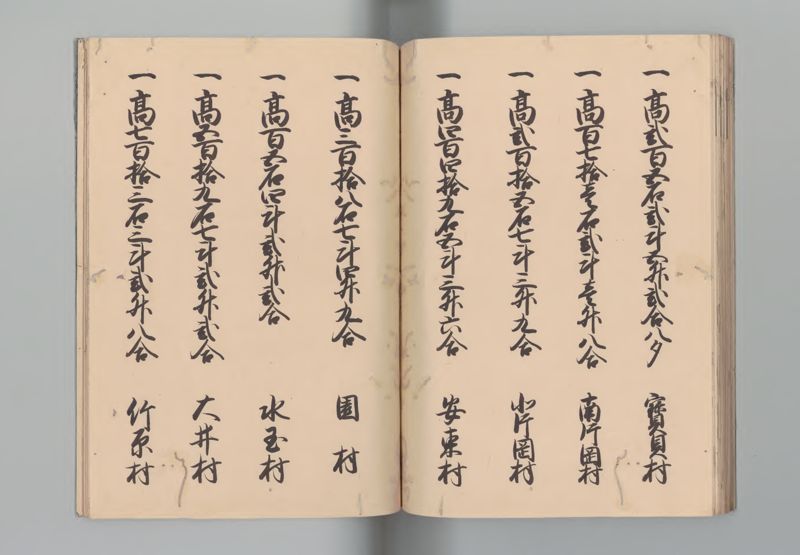 一高弐百五石弐斗五升弐合八夕　寶貝村
一高百七拾壱石弐斗壱升八合　南片岡村
一高弐百拾五石七斗三升九合　北片岡村
一高四百四拾九石五斗三升六合　安東村
一高三百拾八石七斗四升九合　園村
一高百五石四斗弐升弐合　水玉村
一高五百拾九石七斗弐升弐合　大井村
一高七百拾三石三斗弐升八合　竹原村